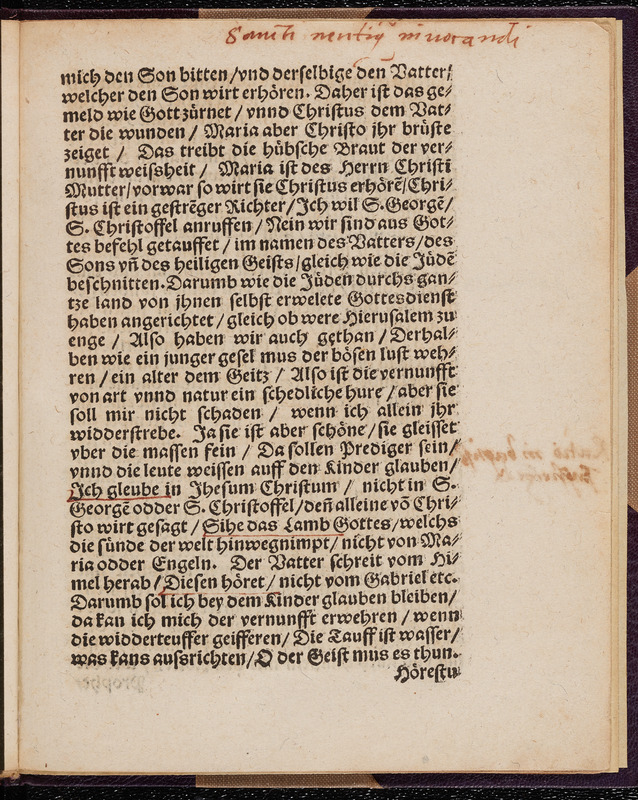 Sancti invocandi
mich den Son bitten/vnd derselbige den Vatter/
welcher den Son wirt erhören. Daher ist das ge⸗
meld wie Gott zürnet/ vnnd Christus dem Vat⸗
ter die wunden / Maria aber Christo jhr brüste
zeiget / Das treibt die hübsche Braut der ver⸗
nunfft weißheit / Maria ist des Herrn Christi
Mutter/vorwar so wirt sie Christus erhörẽ/Chri⸗
stus ist ein gestrẽger Richter/Ich wil S.Georgẽ/
S. Christoffel anruffen/Nein wir sind aus Got⸗
tes befehl getauffet/im namen des Vatters/des
Sons vñ des heiligen Geists/gleich wie die Jüdẽ
beschnitten.Darumb wie die Jüden durchs gan⸗
tze land von jhnen selbst erwelete Gottesdienst
haben angerichtet/gleich ob were Hierusalem zu
enge / Also haben wir auch gethan/Derhal⸗
ben wie ein junger gesel mus der bösen lust weh⸗
ren/ein alter dem Geitz/Also ist die vernunfft
von art vnnd natur ein schedliche hure/aber sie
soll mir nicht schaden / wenn ich allein jhr
widderstrebe. Ja sie ist aber schöne/sie gleisset
vber die massen fein/Da sollen Prediger sein/
vnnd die leute weissen auff den Kinder glauben/
Ich gleube in Jhesum Christum / nicht in S.
Georgẽ odder S. Christoffel/deñ alleine võ Chri⸗
sto wirt gesagt/Sihe das Lamb Gottes/welchs
die sünde der welt hinwegnimpt/nicht von Ma⸗
ria odder Engeln. Der Vatter schreit vom Hi⸗
mel herab/Diesen höret/nicht vom Gabriel etc.
Darumb sol ich bey dem Kinder glauben bleiben/
da kan ich mich der vernunfft erwehren/wenn
die widderteuffer geifferen/Die Tauff ist wasser/
was kans aussrichten/O der Geist mus es thun.
Hörestu